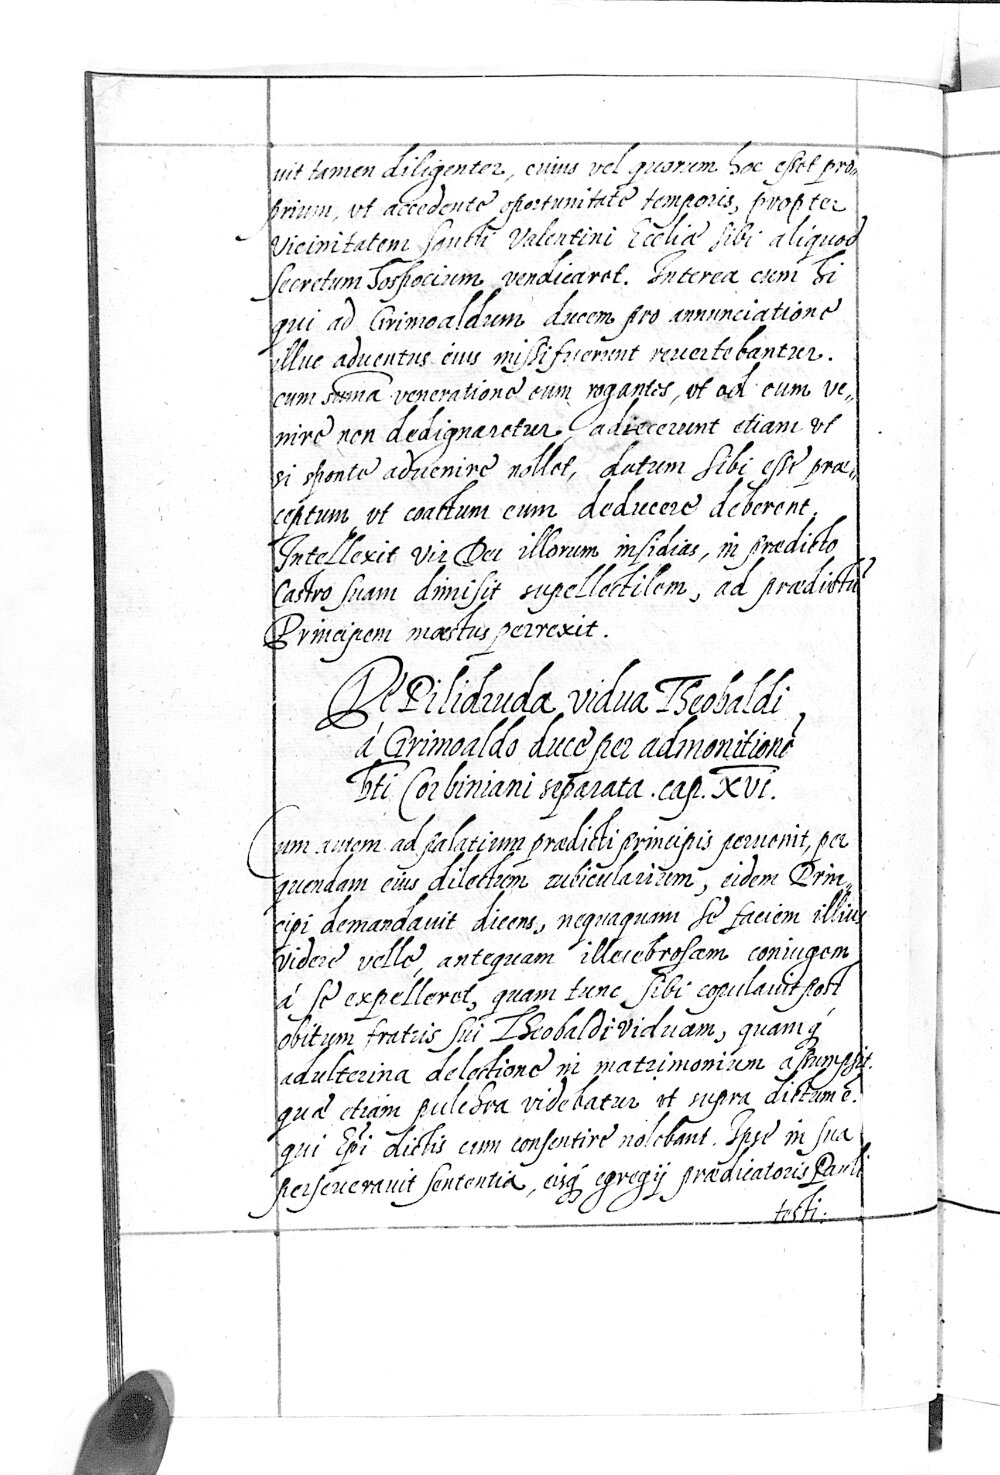 uit tamen diligenter, cuius vel quorum hoc esset pro-
prium, vt accedente oportunitate temporis, propter
vicinitatem sancti Valentini Eccliæ sibi aliquod
secretum hospocium vendicaret. Interea cum hi
qui ad Grimoaldum ducem pro annunciatione
illuc aduentus eius missi fuerunt reuertebantur.
cum suma veneratione eum rogantes, vt ad eum ve-
nire non dedignaretur, adiecerunt etiam vt
si sponte aduenire nollet, datum sibi esse præ-
ceptum vt coactum eum deducere deberent.
Intellexit vir Dei illorum insidias, in prædicto
Castro suam dimisit supellectilem, ad prædictū
Principem mæstus perrexit.
De Pilidruda vidua Theobaldi
á Grimoaldo duce per admonitione
bti Corbiniani separata. cap. XVI.
Cum autem ad palatium prædicti principis peruenit, per
quendam eius dilectum cubicularium, eidem Prin-
cipi demandauit dicens, nequaquam se faciem illius
videre velle, antequam illecebrosam coniugem
á se expelleret, quam tunc sibi copulauit post
obitum fratris sui Theobaldi viduam, quamq́
adulterina delectione in matrimonium assumpsit.
quæ etiam pulchra videbatur vt supra dictum ē.
qui Epi dictis cum consentire nolebant. Ipse in sua
perseuerauit sententia, eisq́ egregij prædicatoris Pauli
testi: